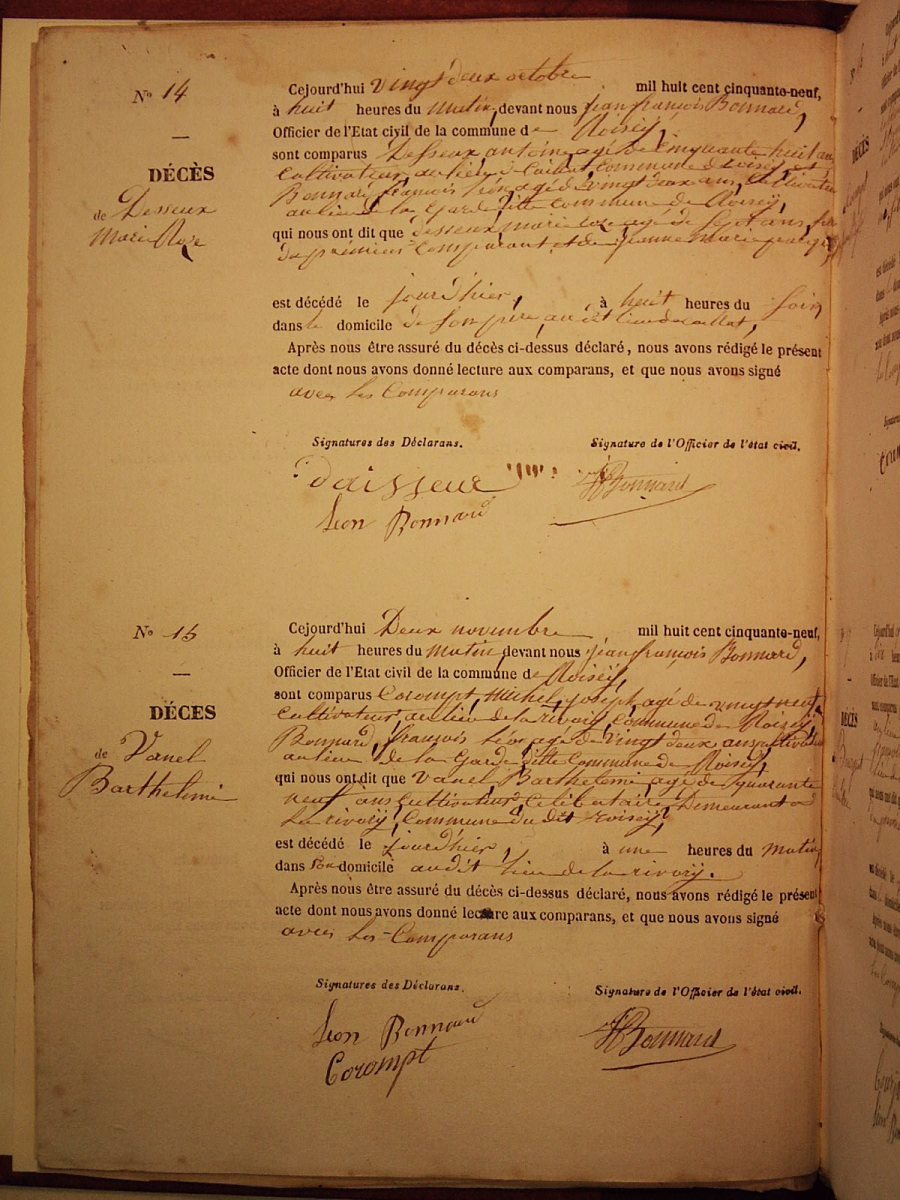 No 14
DÉCÈS
de Desseux
Marie Roze
Cejourd'hui vingt deux octobre mil huit cent cinquante-neuf,
à huit heures du matin, devant nous jean françois Bonnard,
Officier de l'Etat civil de la commune de Roisey,
sont comparus Desseux, antoine, agé de Cinquante huit ans
cultivateur, au lieu de commune de roisey, et
Bonnard françois Léon, agé de vingt deux ans, Cultivateur
au lieu de la Garde, dite commune de Roisey,
qui nous ont dit que desseux, marie roze agé de Sept ans,
du premier comparant, et de jeanne Marie
est décédé le jourd'hier, à huit heures du Soir,
dans le domicile de Son père, au dit lieu de
Après nous être assuré du décès ci-dessus déclaré, nous avons rédigé le présent
acte dont nous avons donné lecture aux comparans, et que nous avons signé
avec les Comparans
Signatures des Déclarans. Signature de l'Officier de l'état civil.
Daisseux Bonnard
Leon Bonnard
No 15
DÉCES
de Vanel
Barthelemi
Cejourd'hui Deux novembre, mil huit cent cinquante-neuf,
à huit heures du matin, devant nous jean françois Bonnard,
Officier de l'Etat civil de la commune de Roisey,
sont comparus Corompt, Michel, joseph, agé de vingt neuf
cultivateur, au lieu de la rivory, commune de Roisey
Bonnard, françois Léon, agé de vingt deux ans, cultivateur
au lieu de la Garde, dite Commune de Roisey,
qui nous ont dit que Vanel Barthelemi, agé de quarante
neuf ans, cultivateur, Célibataire, Demeurant a
La rivory, Commune du dit roisey,
est décédé le jourd'hier, à une heures du matin,
dans Son domicile au dit lieu de la rivory.
Après nous être assuré du décès ci-dessus déclaré, nous avons rédigé le présent
acte dont nous avons donné lecture aux comparans, et que nous avons signé
avec les Comparans
Signatures des Déclarans. Signature de l'Officier de l'état civil.
Leon Bonnard Bonnard
Corompt